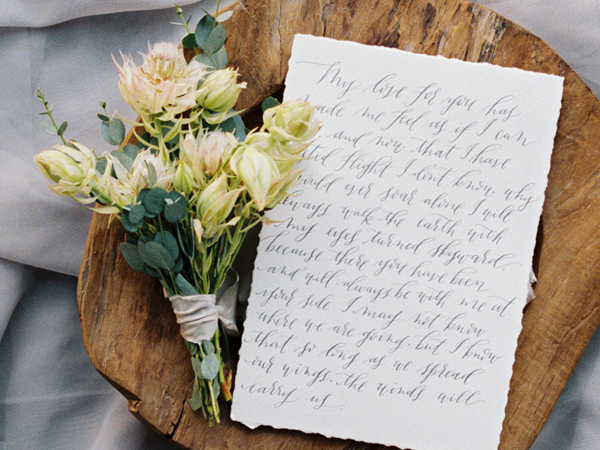 My love for you has
made me feel as if I can
and now that I have
flight. I don't know why
would ever soar alone. I will
always walk the earth with
my eyes turned skyward
because there you have been
and will always be with me at
your side I may not know
where we are going. but I know
that so long as we spread
our wings. the winds will
carry us.